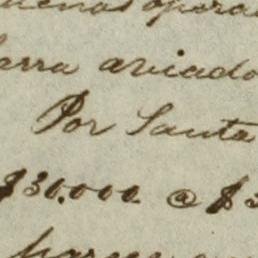 buenas opera
arra aviado
Por Santa
$30.000 @ $3